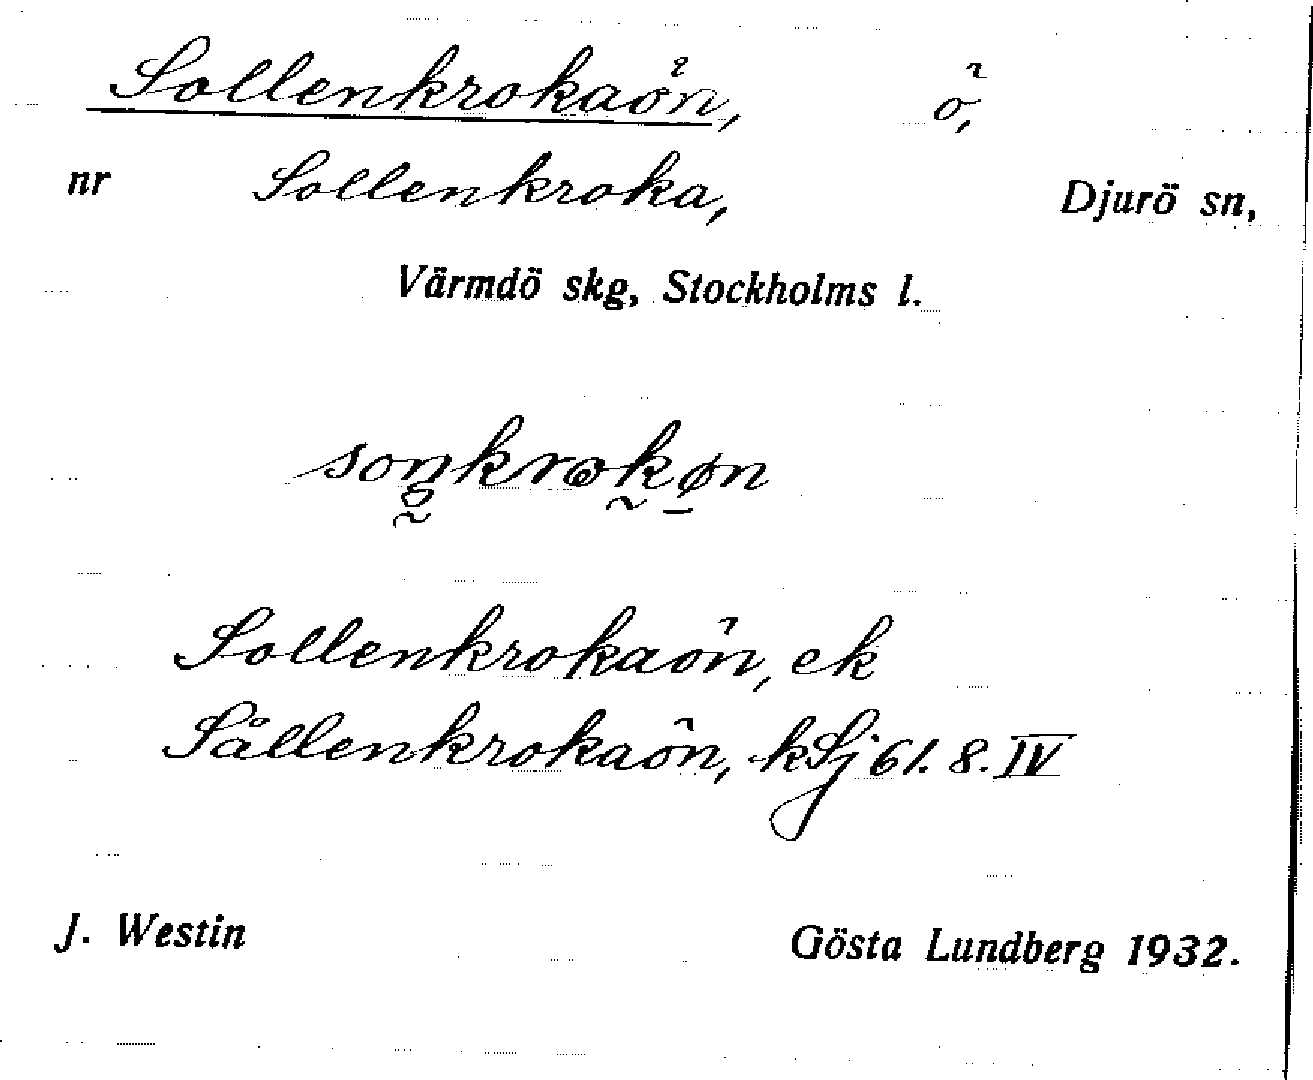 Sollenkrokaön, ö,
nr Sollenkroka, Djurö sn,
Värmdö skg, Stockholms l.
Sollenkrokaön, ek
Sållenkrokaön, kSj 61. 8. IV
J. Westin Gösta Lundberg 1932.